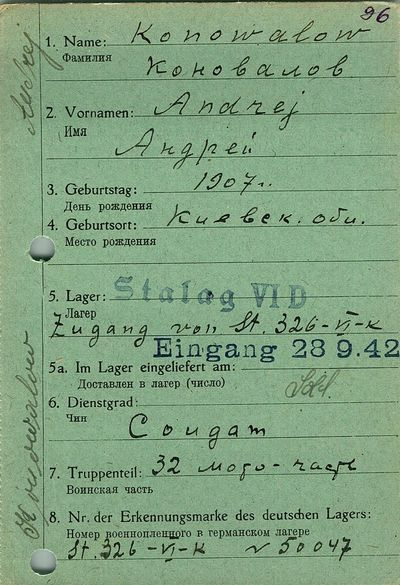 96
1. Name: Konowalow
Фамилия
Коновалов
2. Vornamen: Andrej
Имя
Андрей
3. Geburtstag: 1907 г.
День рождения
4. Geburtsort: Киевск. обл.
Место рождения
5. Lager: Stalag VI D
Лагер
Zugang von St. 326-VI-K
Eingang 28 9.42
5a. Im Lager eingeliefert am:
Доставлен в лагер (число)
6. Dienstgrad:
Чин
Солдат
7. Truppenteil: 32 мото-часть
Воинская часть
8. Nr. der Erkennungsmarke des deutschen Lagers:
Номер военнопленного в германском лагере
St. 326-VI-K N 50047
Andrej
Konowalow